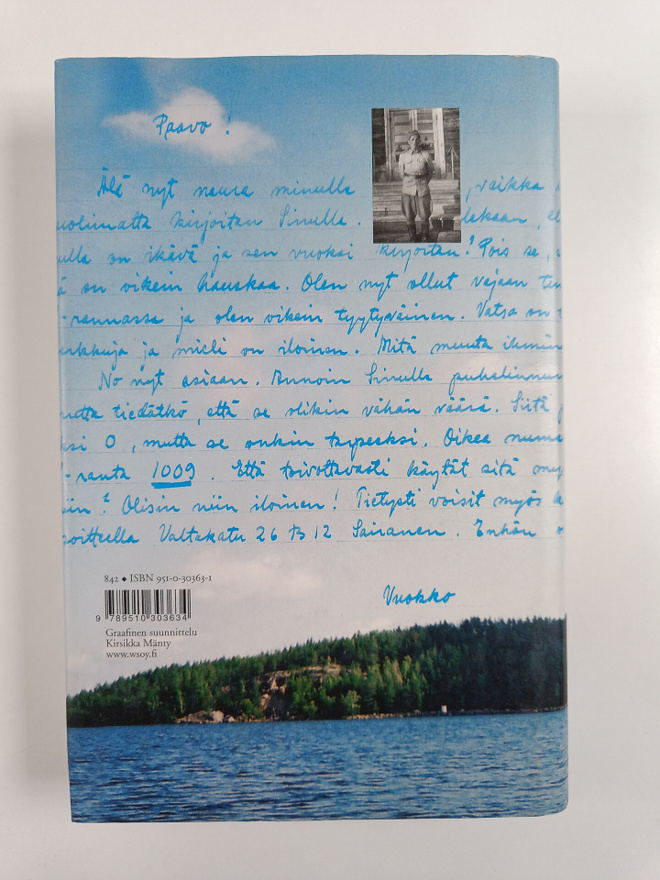 Paavo!
Älä nyt naura minulle , vaikka
kirjoitan Sinulle.
on ikävä ja sen vuoksi kirjoitan? Pois se,
on oikein hauskaa. Olen nyt ollut vajaan
-rannassa ja olen oikein tyytyväinen. Vatsa on
ja mieli on iloinen. Mitä muuta
No nyt asiaan. Annoin Sinulle
tiedätkö, että se olikin vähän väärä. Siitä
0, mutta se onkin tarpeeksi. Oikea
-ranta 1009. Että toivottavasti käytät sitä
? Olisin niin iloinen! Tietysti voisit myös
Valtakatu 26 B 12 Sairanen. Enhän
Vuokko
842 ◆ ISBN 951-0-30363-1
9 789510 303634
Graafinen suunnittelu
Kirsikka Mänty
www.wsoy.fi